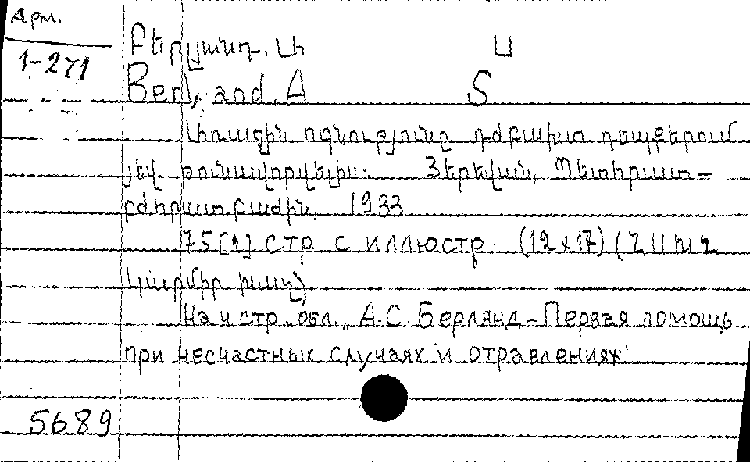 Арм.
1-271
Բերլյանդ. Ա Ս
Berl, and. A S
Առաջին ոգնությունը դժբախտ դեպքերում
յեվ թունավորվելիս. Յերեվան, Պետհրատ-
բժհրատբաժին, 1933
75[1] стр. с иллюстр. (12x17) (
կարմիր խաչ)
На 4 стр. обл.: А.С. Берлянд - Первая помощь
при несчастных случаях и отравлениях
5689